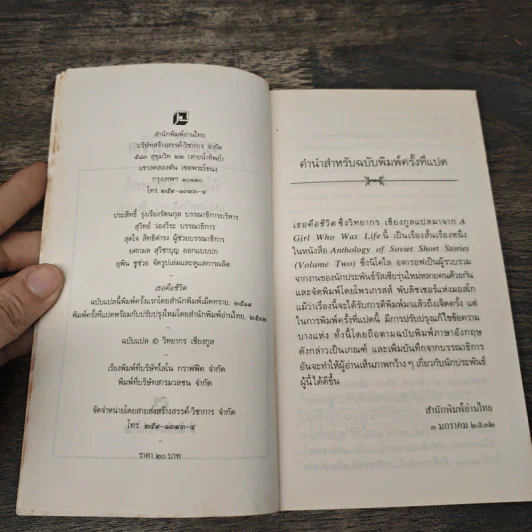 สำนักพิมพ์อ่านไทย
บริษัทสร้างสรรค์-วิชาการ จำกัด
๕๘๓ สุขุมวิท ๒๒ (สายน้ำทิพย์)
แขวงคลองตัน เขตพระโขนง
กรุงเทพฯ ๑๐๑๑๐
โทร. ๒๕๙-๑๓๙๓-๔
ประสิทธิ์ รุ่งเรืองรัตนกุล บรรณาธิการบริหาร
สุวิทย์ ว่องวีระ บรรณาธิการ
สุดใจ ลิทธิดำรง ผู้ช่วยบรรณาธิการ
ยศกมล สุวิชาบุญ ออกแบบปก
ยุพิน ชูช่วย จัดรูปเล่มและดูแลการผลิต
เธอคือชีวิต
ฉบับแปลนี้พิมพ์ครั้งแรกโดยสำนักพิมพ์เม็ดทราย, ๒๕๑๙
พิมพ์ครั้งที่แปดพร้อมกับปรับปรุงใหม่โดยสำนักพิมพ์อ่านไทย, ๒๕๓๒
ฉบับแปล © วิทยากร เชียงกูล
เรียงพิมพ์ที่บริษัทไลโน กราฟฟิค จำกัด
พิมพ์ที่บริษัทสารมวลชน จำกัด
จัดจำหน่ายโดยสายส่งสร้างสรรค์-วิชาการ จำกัด
โทร. ๒๕๙-๑๓๙๓-๔
ราคา ๒๐ บาท
คำนำสำหรับฉบับพิมพ์ครั้งที่แปด
เธอคือชีวิต ซึ่งวิทยากร เชียงกูลแปลมาจาก A
Girl Who Was Life นี้ เป็นเรื่องสั้นเรื่องหนึ่ง
ในหนังสือ Anthology of Soviet Short Stories
(Volume Two) ซึ่งนิโคไล อตารอฟเป็นผู้รวบรวม
จากงานของนักประพันธ์รัสเซียรุ่นใหม่หลายคนด้วยกัน
และจัดพิมพ์โดยโพรเกรสส์ พับลิชเชอร์แห่งมอสโก
แม้ว่าเรื่องนี้จะได้รับการตีพิมพ์มาแล้วถึงเจ็ดครั้ง แต่
ในการพิมพ์ครั้งที่แปดนี้ มีการปรับปรุงแก้ไขข้อความ
บางแห่ง ทั้งนี้โดยถือตามฉบับพิมพ์ภาษาอังกฤษ
ดังกล่าวเป็นเกณฑ์ และเพิ่มบันทึกจากบรรณาธิการ
อันจะทำให้ผู้อ่านเห็นภาพกว้าง ๆ เกี่ยวกับนักประพันธ์
ผู้นี้ได้ดีขึ้น
สำนักพิมพ์อ่านไทย
๓ มกราคม ๒๕๓๒